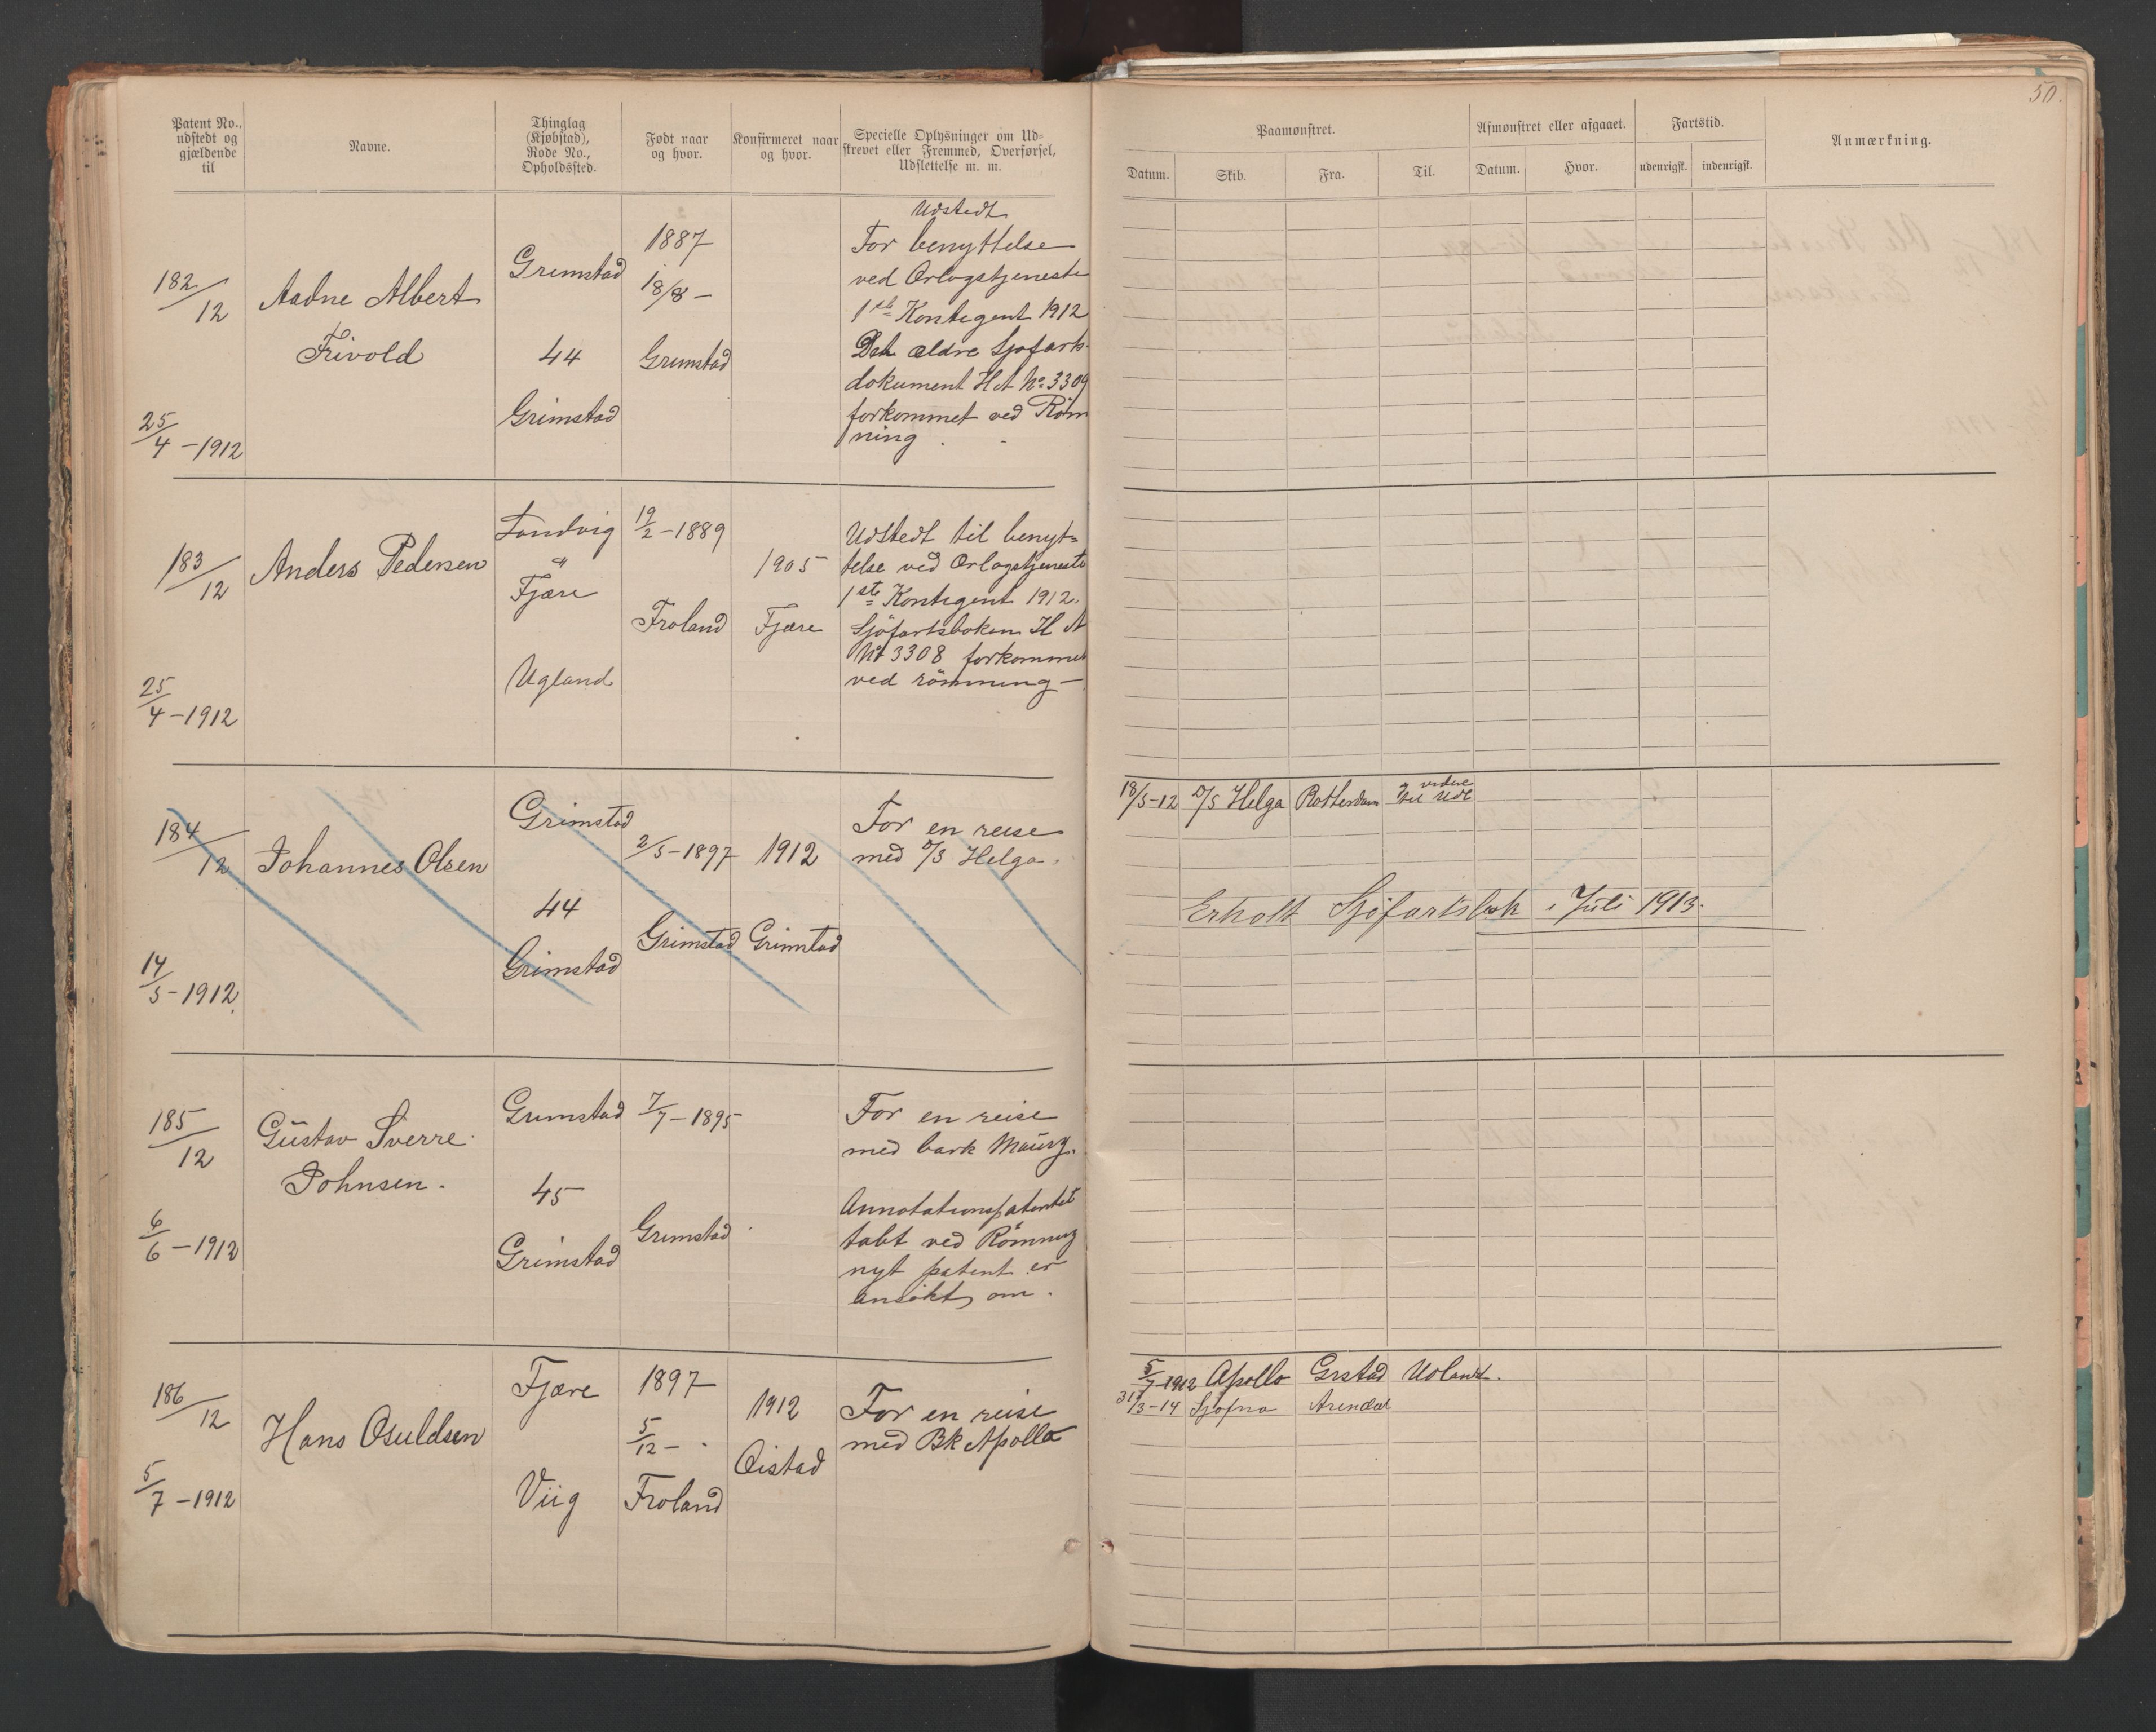 50.
Patent No., udstedt og gjældende til
Navne.
Thinglag (Kjøbstad), Rode No., Opholdssted.
Født naar og hvor.
Konfirmeret naar og hvor.
Specielle Oplysninger om Udskrevet eller Fremmed, Overførsel, Udslettelse m. m.
Paamønstret.
Datum.
Skib.
Fra.
Til.
Afmønstret eller afgaaet.
Datum.
Hvor.
Fartstid.
udenrigsk.
indenrigsk.
Anmærkning.
182/12
25/4 - 1912
Aadne Albert
Frivold
Grimstad
44
Grimstad
1887
18/8 -
Grimstad
Udstedt
For benyttelse
ved Orlogstjeneste
1ste Kontegent 1912
Det ældre Sjøfarts-
dokument H A No 3309
forkommet ved Røm
ning.
183/12
25/4 - 1912
Anders Pedersen
Landvig
"
Fjære
Ugland
19/2 - 1889
Froland
1905
Fjære
Udstedt til benyt=
telse ved Orlogstjeneste
1ste Kontegent 1912.
Sjöfartsboken H A
No 3308 forkommet
ved römning -
184/12
14/5 - 1912.
Johannes Olsen
Grimstad
44
Grimstad
2/5 - 1897
Grimstad
1912
Grimstad
For en reise
med D/S Helga.
18/5-12 D/S Helga Rotterdam videre til Udl
Erholt Sjøfartsbok i Juli 1913.
185/12
6/6 - 1912
Gustav Sverre
Johnsen.
Grimstad
45
Grimstad
7/7 - 1895
Grimstad
For en reise
med bark
Annotationspatentet
tabt ved Römning
nyt patent er
ansøkt om.
186/12
5/7 - 1912
Hans Osuldsen
Fjære
Viig
1897
5/12 -
Froland
1912
Øistad
For en reise
med Bk Apollo
5/7-1912 Apollo Grstad Udland.
31/3-14 Sjofna Arendal